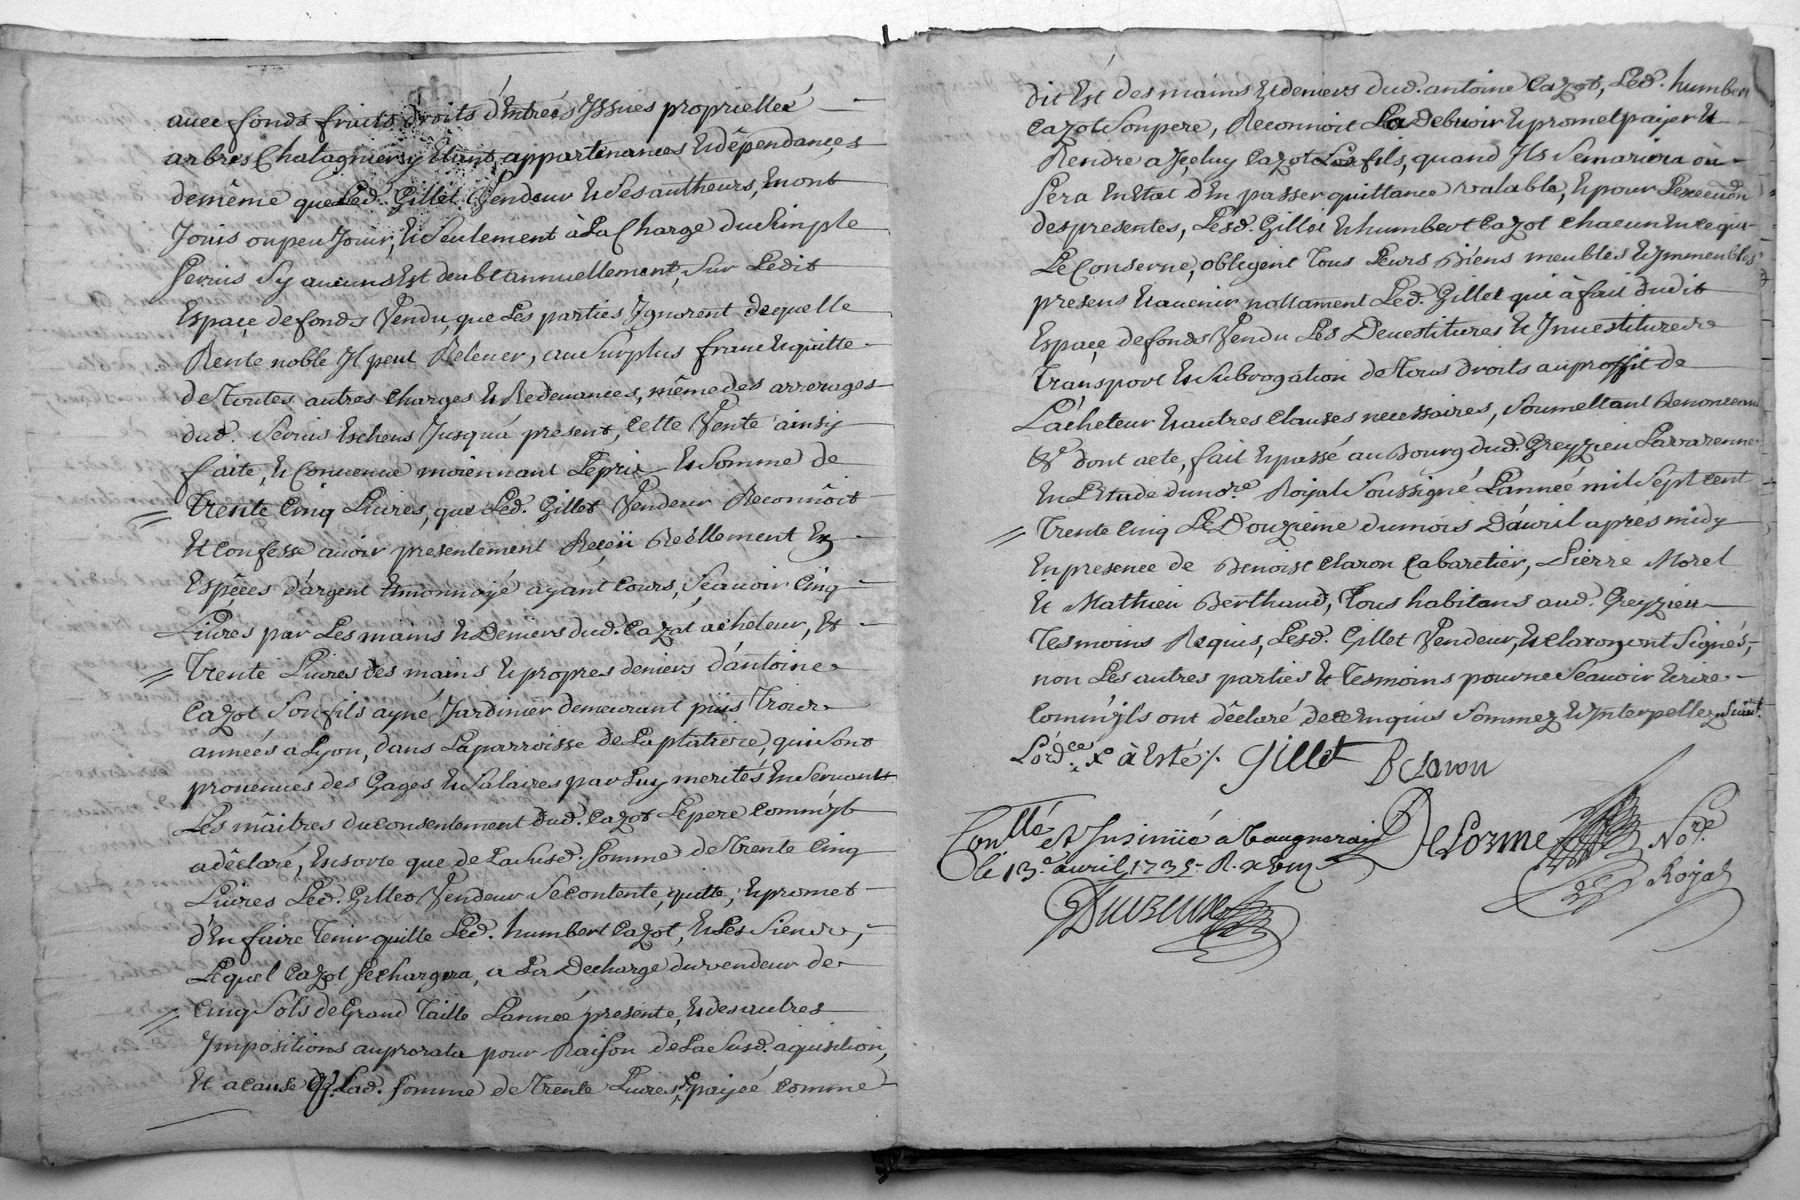 avec fonds fruits droits d'Entrées Issües proprietteé
arbres Chatagniers y Etant, appartenances Et dépendances
demême que Led. Gillet Vendeur Et Ses autheurs, En ont
Jouis ou peu Jouir, Et Seulement à La Charge du Simple
Servis Sy aucuns Est deubt annuellement, Sur Ledit
Espace de fonds Vendu, que Les parties Ignorent de quelle
Rente noble Il peut Relever, au Surplus franc Et quitte
de Toutes autres charges Et Redevances, même des arrerages
dud. Servis Escheus Jusqu'a present, Cette Vente ainsy
faite, Et Convenue moiennant Le prix Et Somme de
Trente Cinq Livres, que Led. Gillet Vendeur Reconnôit
Et Confesse avoir presentement Reçeü Réellement En
Espêces d'argent Et monnoyé ayant Cours, Scavoir Cinq
Livres par Les mains Et Deniers dud. Cazot acheteur, Et
Trente Livres des mains Et propres deniers d'antoine
Cazot Son fils ayné Jardinier demeurant puis Trois
années a Lyon, dans La parroisse de La platiere, qui Sont
provenues des Gages Et Salaires par Luy merités En Servant
Les mâitres du Consentement dud. Cazot Le pere Comm'il
a déclaré, En Sorte que de La Susd. Somme de Trente Cinq
Livres Led. Gillet Vendeur Se Contente, quitte, Et promet
d'En faire Tenir quitte Led. humbert Cazot, Et Les Siens,
Lequel Cazot Se chargera, a La Decharge du vendeur de
Cinq Sols de Grand Taille L'année présente, Et des autres
Impositions au prorata pour Raison de La Susd. aquisition,
Et a cause q. Lad. Somme de Trente Livres, payée Comme
dit Est des mains Et deniers dud. antoine Cazot, Led. humbert
Cazot Son pere, Reconnoit La Debvoir Et promet payer Et
Rendre a Iceluy Cazot Son fils, quand Il Se mariera ou
Sera En Etat d'En passer quittance valable, Et pour L'execuôn
des presentes, Lesd. Gillet Et humbert Cazot chacun En ce qui
Le Conserne, obligent Tous Leurs Biens meubles Et Immeubles
presens Et avenir nottament Led. Gillet qui à fait dudit
Espace de fonds Vendu Les Devestitures Et Investitures
Transport Et Subrogation de Tous droits au proffit de
L'acheteur Et autres Clauses necessaires, Soumettant Renonceant
&c dont acte, fait Et passé au Bourg dud. Greyzieu Lavarenne
En L'Etude du no.re Royal Soussigné L'année mil Sept cent
Trente Cinq Le Douzième du mois D'avril après midy
En presence de Benoist Claron Cabaretier, Pierre Morel
Et Mathieu Berthaud, Tous habitans aud. Greyzieu
Tesmoins Requis, Lesd. Gillet Vendeur, Et Claron ont Signés,
non Les autres parties Et Tesmoins pour ne Scavoir Ecrire
Comm'ils ont déclaré de ce Enquis Sommez Et Interpellez Suivt.
L'ord.ce à Esté /. Gillet B Claron
Con.llé Et Insinüé a Vaugneray Delorme No.re
le 13.e avril 1735. Royal